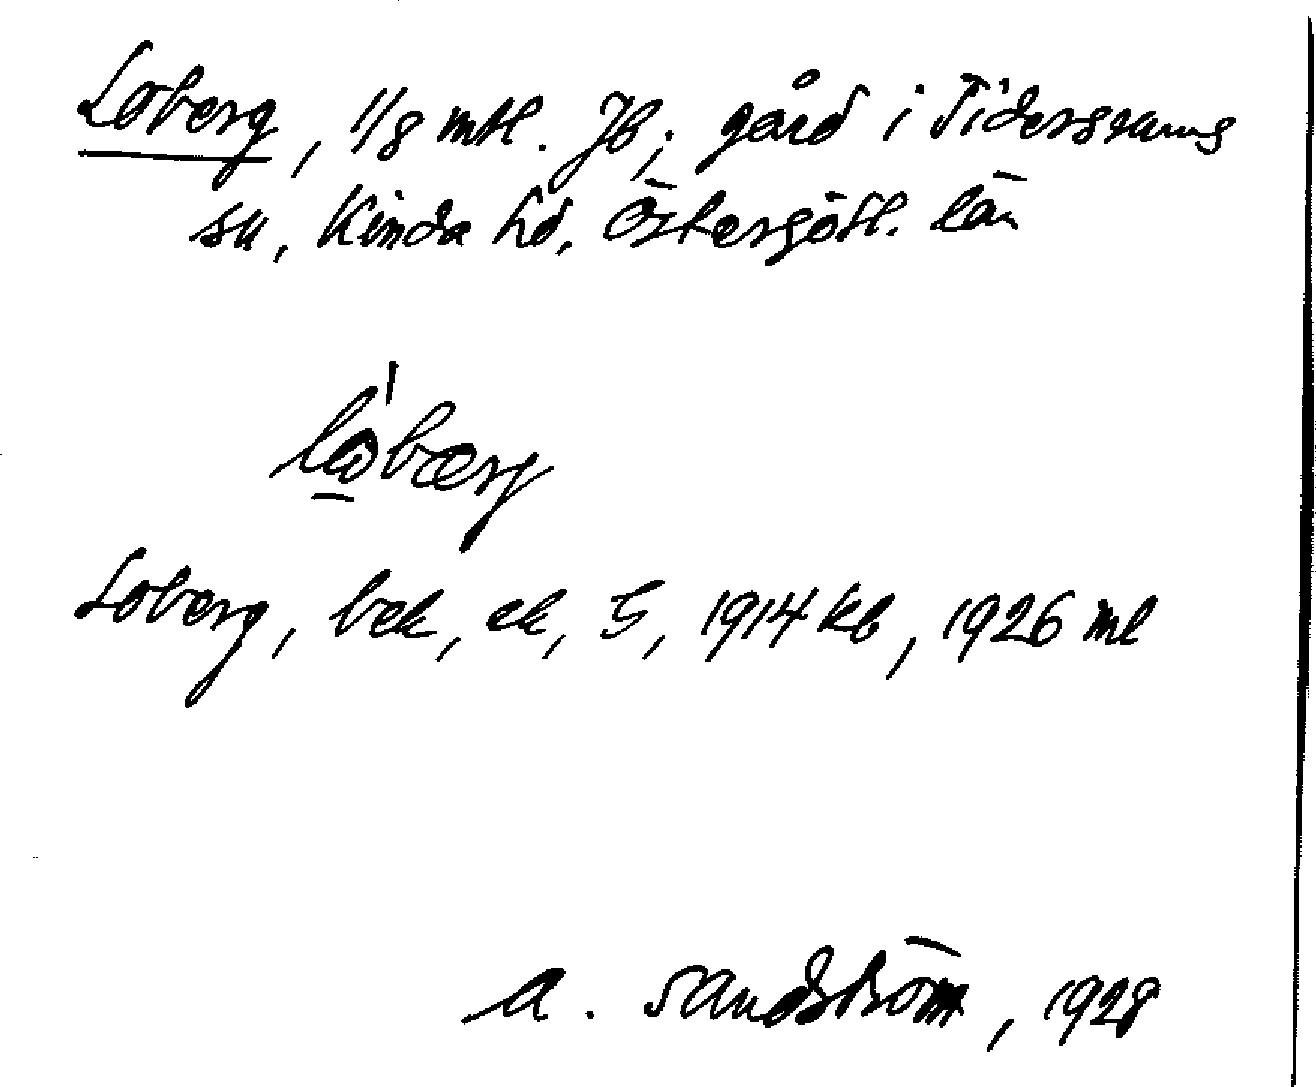 Loberg, 1/8 mtl. Jb; gård i Tidersrums
sn, Kinda hd, Östergötl. län
Loberg, bek, ek, 5, 1914 kb, 1926 ml
A. Sandström, 1928